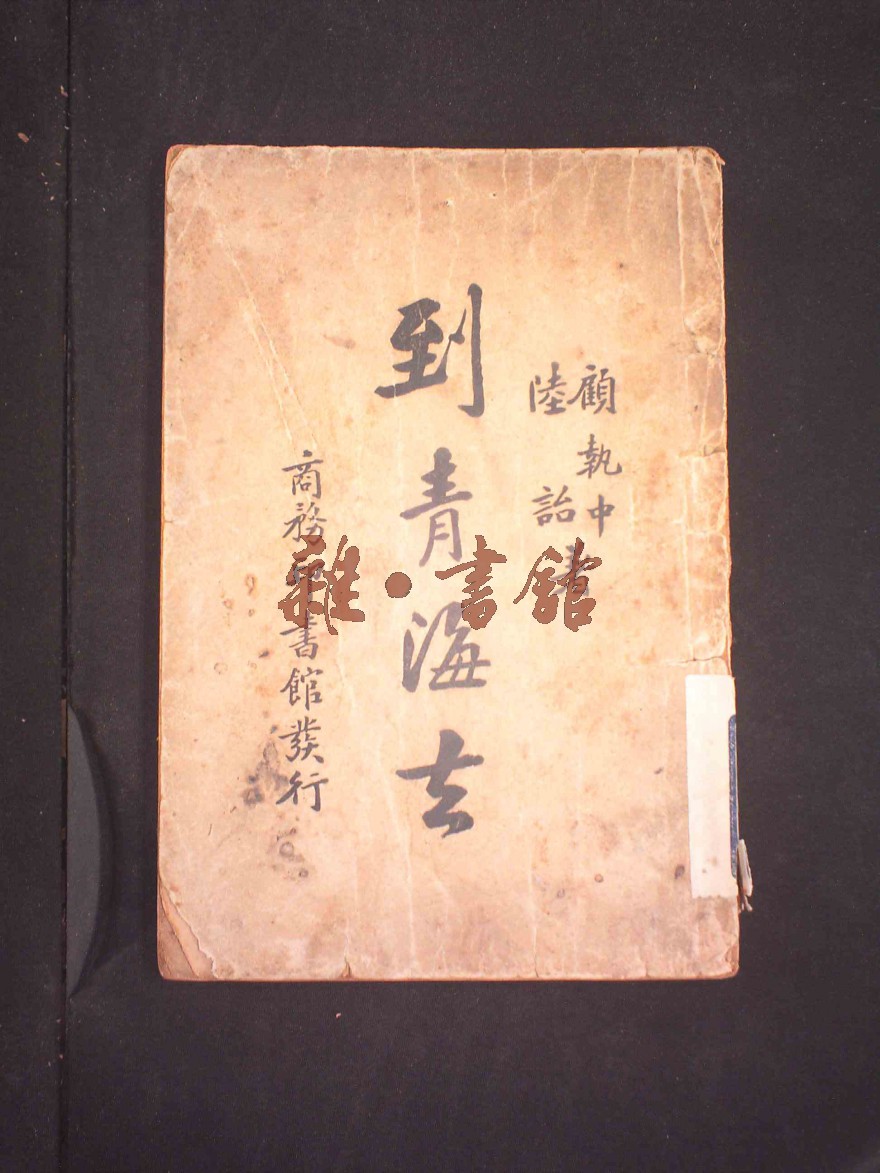 顧執中
陸詒
著
到青海去
商務印書館發行
雜·書館